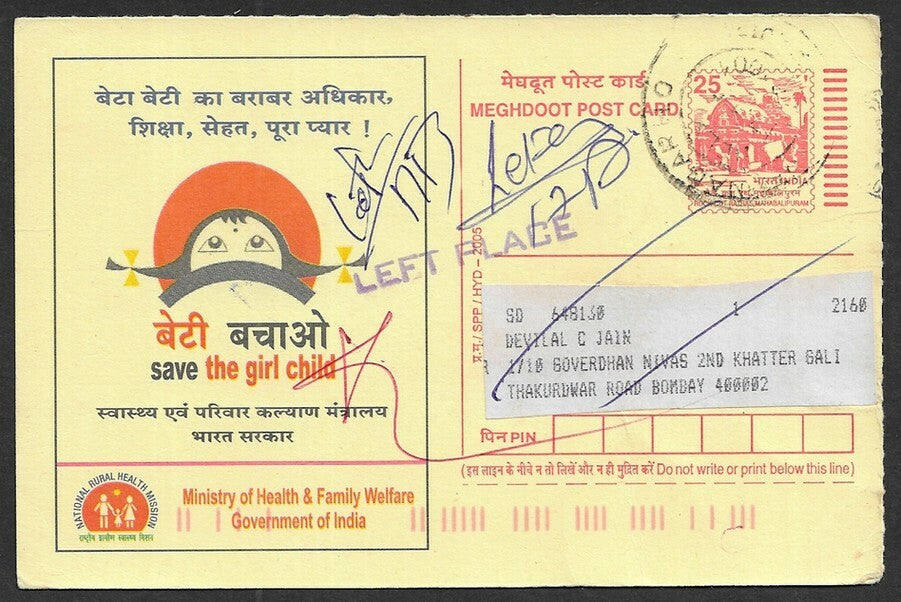 बेटा बेटी का बराबर अधिकार,
शिक्षा, सेहत, पूरा प्यार !
बेटी बचाओ
save the girl child
स्वास्थ्य एवं परिवार कल्याण मंत्रालय
भारत सरकार
NATIONAL RURAL HEALTH MISSION
राष्ट्रीय ग्रामीण स्वास्थ्य मिशन
Ministry of Health & Family Welfare
Government of India
मेघदूत पोस्ट कार्ड
MEGHDOOT POST CARD
25
भारत INDIA
ROCKCUT RATHAS, MAHABALIPURAM
LEFT PLACE
प्र.मु./ SPP / HYD – 2005
SD 648130 1 2160
DEVILAL C JAIN
1/10 GOVERDHAN NIVAS 2ND KHATTER GALI
THAKURDWAR ROAD BOMBAY 400002
पिन PIN
(इस लाइन के नीचे न तो लिखें और न ही मुद्रित करें Do not write or print below this line)